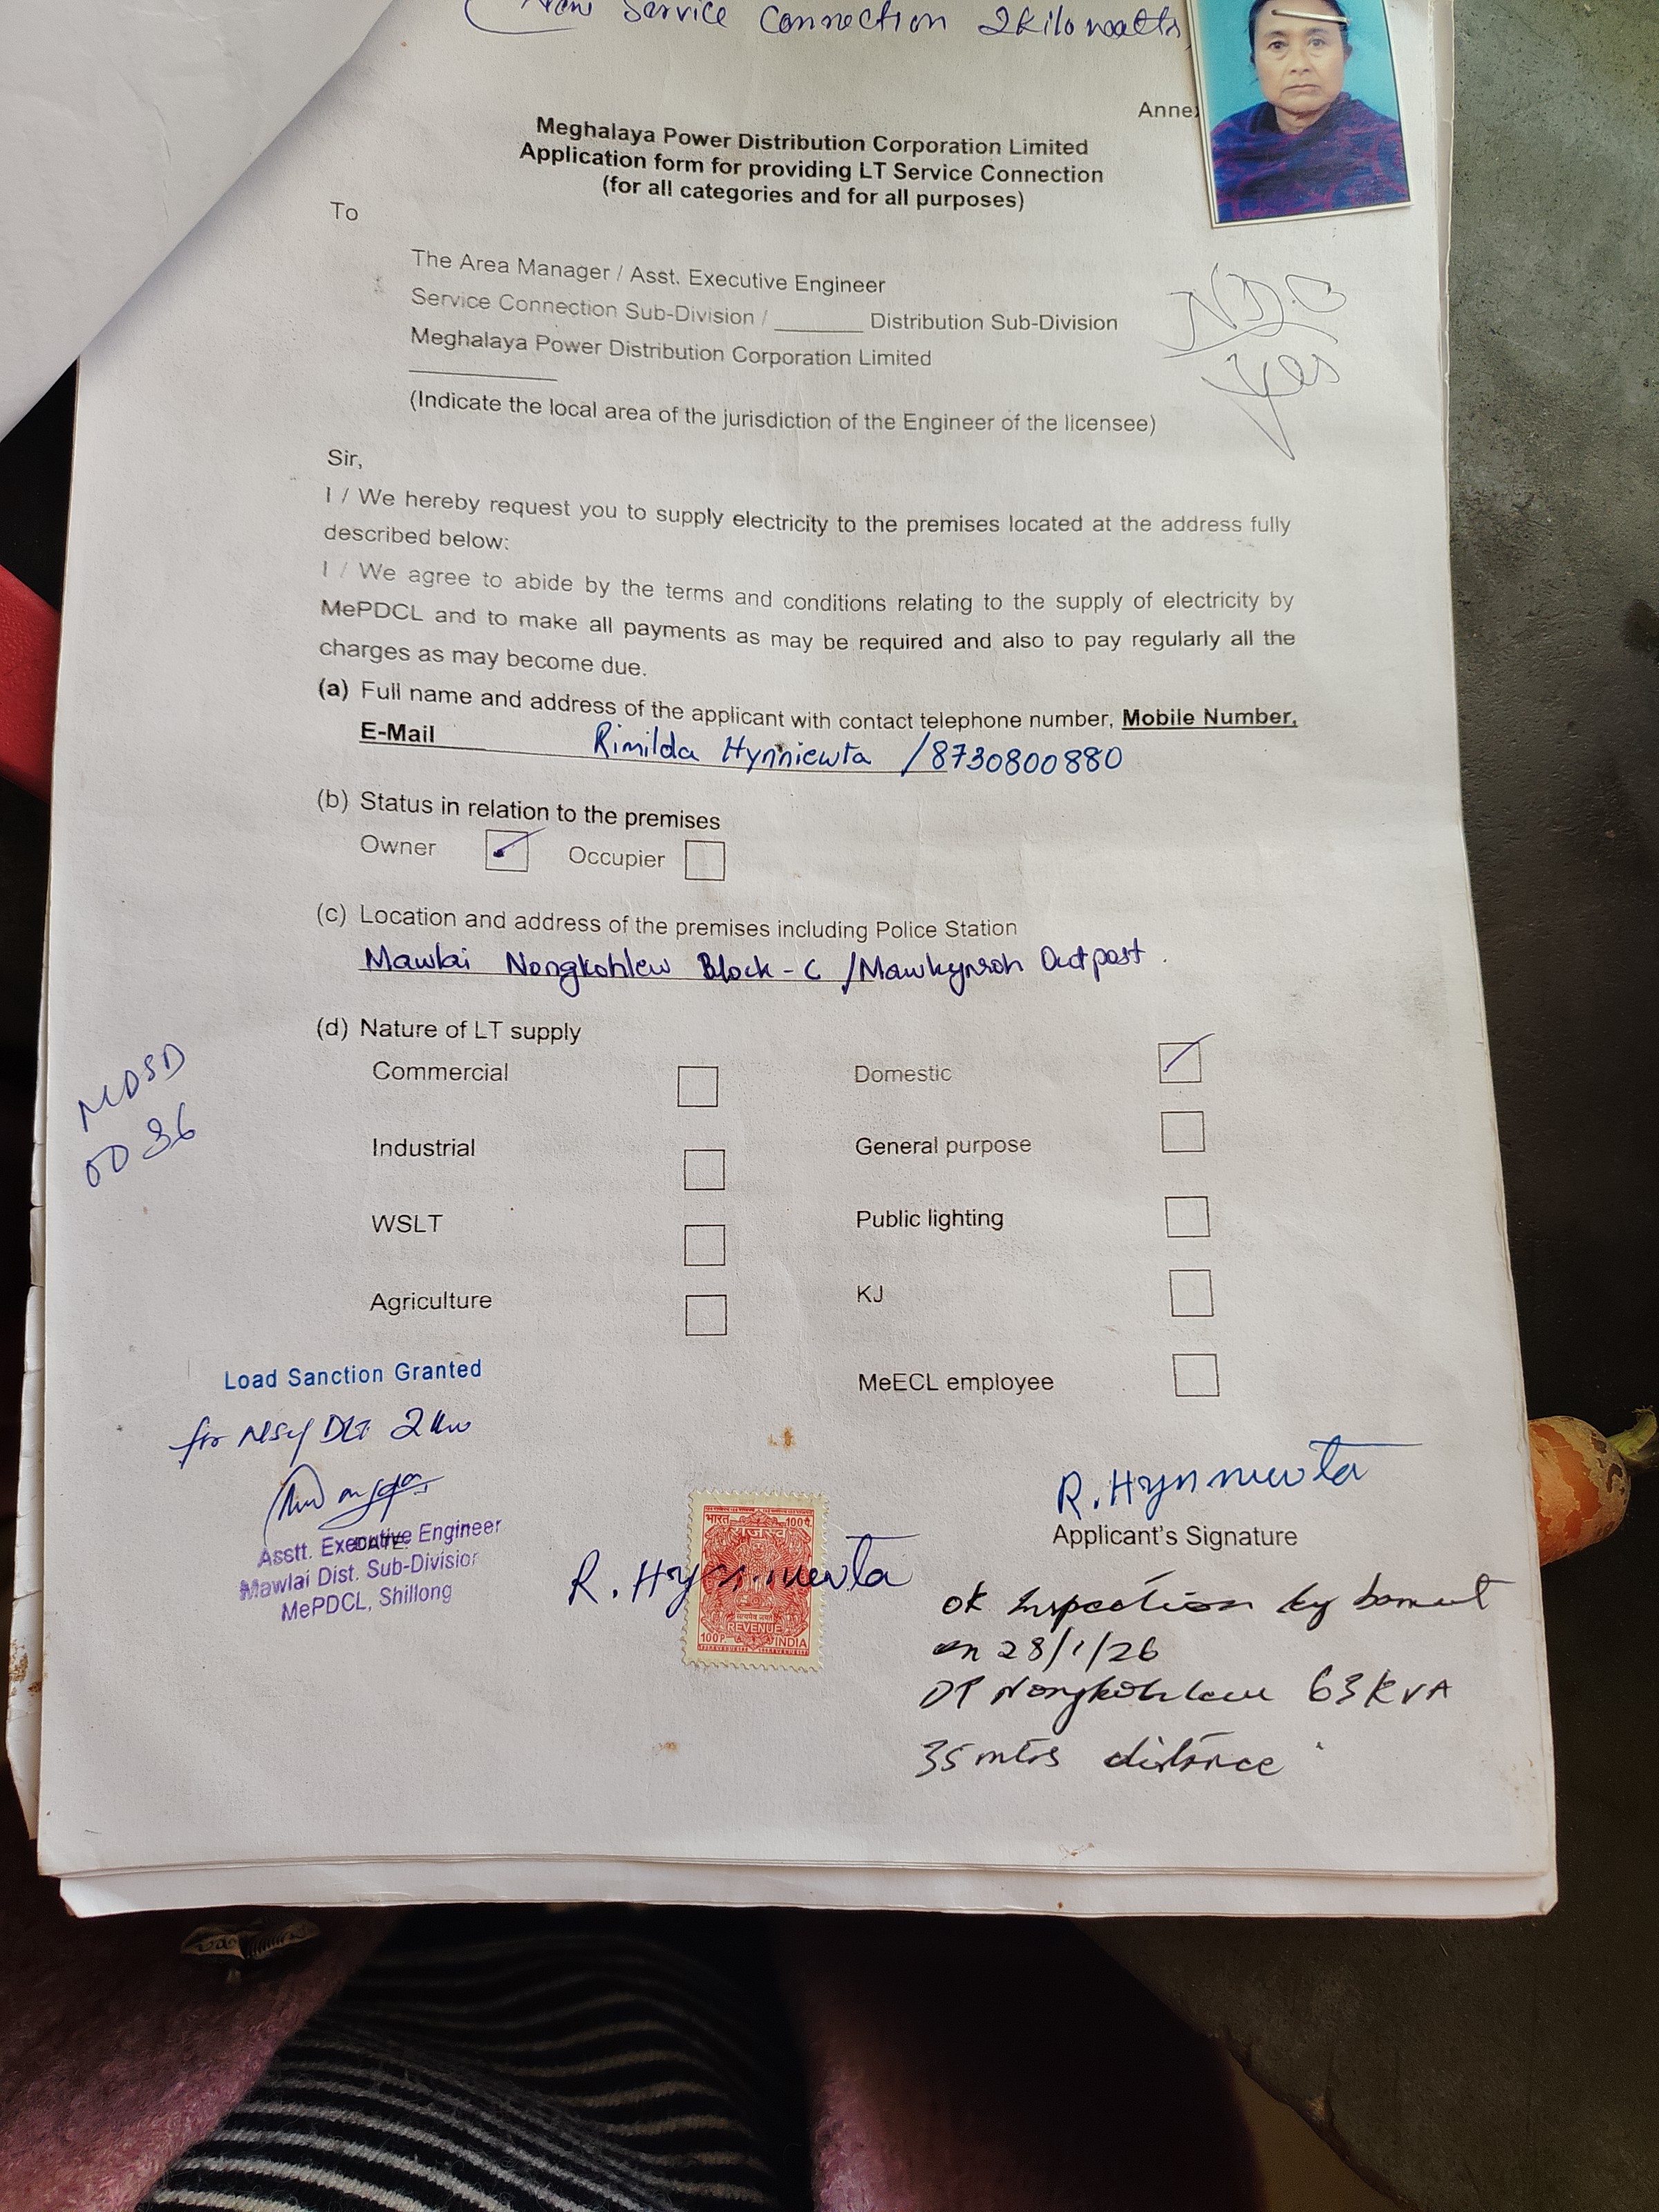 New Service Connection 2 Kilowatts
Anne
Meghalaya Power Distribution Corporation Limited
Application form for providing LT Service Connection
(for all categories and for all purposes)
To
The Area Manager / Asst. Executive Engineer
Service Connection Sub-Division / ______ Distribution Sub-Division
Meghalaya Power Distribution Corporation Limited
(Indicate the local area of the jurisdiction of the Engineer of the licensee)
Yes
Sir,
I / We hereby request you to supply electricity to the premises located at the address fully
described below:
I / We agree to abide by the terms and conditions relating to the supply of electricity by
MePDCL and to make all payments as may be required and also to pay regularly all the
charges as may become due.
(a) Full name and address of the applicant with contact telephone number, Mobile Number,
E-Mail Rimilda Hynniewta /8730800880
(b) Status in relation to the premises
Owner Occupier
(c) Location and address of the premises including Police Station
Mawlai Nongkohlew Block-C /Mawkynroh Outpost.
(d) Nature of LT supply
Commercial Domestic
MDSD
Industrial General purpose
WSLT Public lighting
Agriculture KJ
MeECL employee
Load Sanction Granted
for DLT 2 kw
Asstt. Executive Engineer
Mawlai Dist. Sub-Division
MePDCL, Shillong
R. Hynniewta
Applicant's Signature
R. Hynniewta
भारत 100 पै.
राजस्व
सत्यमेव जयते
REVENUE
100P. INDIA
ok Inspection by
on 28/1/26
DT Nongkohlew 63 KVA
35 mtrs distance